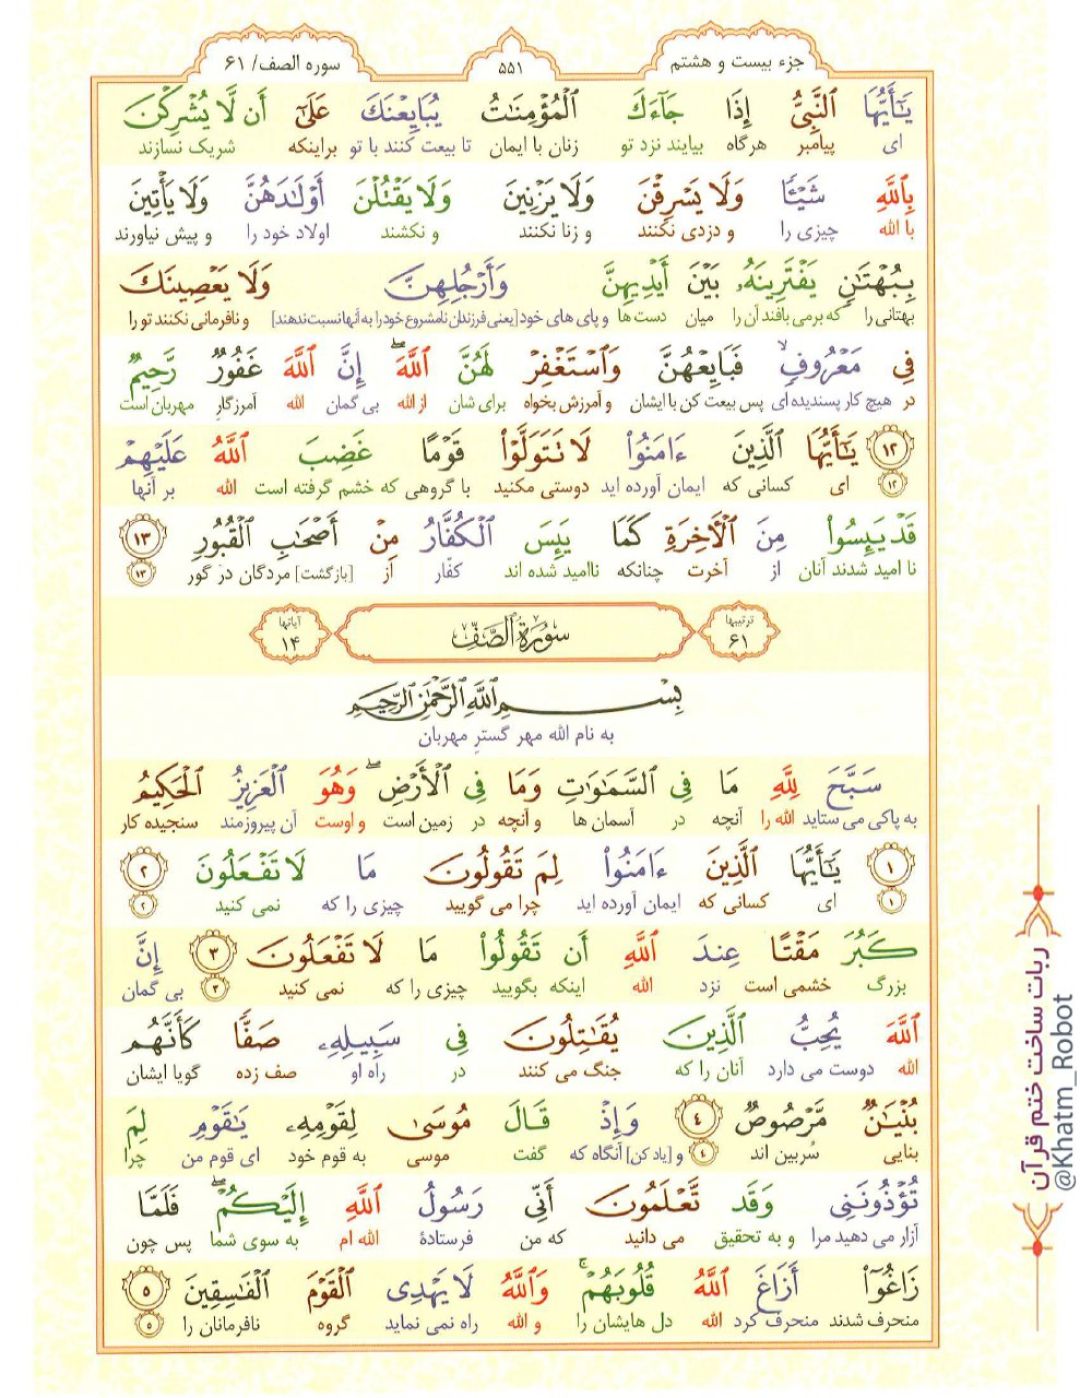 جزء بیست و هشتم
۵۵۱
سوره الصف/ ۶۱
يَٰٓأَيُّهَا ٱلنَّبِيُّ إِذَا جَآءَكَ ٱلْمُؤْمِنَٰتُ يُبَايِعْنَكَ عَلَىٰٓ أَن لَّا يُشْرِكْنَ
ای پیامبر هرگاه بیایند نزد تو زنان با ایمان تا بیعت کنند با تو براینکه شریک نسازند
بِٱللَّهِ شَيْـًٔا وَلَا يَسْرِقْنَ وَلَا يَزْنِينَ وَلَا يَقْتُلْنَ أَوْلَٰدَهُنَّ وَلَا يَأْتِينَ
با الله چیزی را و دزدی نکنند و زنا نکنند و نکشند اولاد خود را و پیش نیاورند
بِبُهْتَٰنٍ يَفْتَرِينَهُۥ بَيْنَ أَيْدِيهِنَّ وَأَرْجُلِهِنَّ وَلَا يَعْصِينَكَ
بهتانی را که برمی بافند آن را میان دست ها و پای های خود [یعنی فرزندان نامشروع خود را به آنها نسبت ندهند] و نافرمانی نکنند تو را
فِي مَعْرُوفٍ ۙ فَبَايِعْهُنَّ وَٱسْتَغْفِرْ لَهُنَّ ٱللَّهَ ۖ إِنَّ ٱللَّهَ غَفُورٌ رَّحِيمٌ
در هیچ کار پسندیده ای پس بیعت کن با ایشان و آمرزش بخواه برای شان از الله بی گمان الله آمرزگار مهربان است
۱۲ يَٰٓأَيُّهَا ٱلَّذِينَ ءَامَنُوا۟ لَا تَتَوَلَّوْا۟ قَوْمًا غَضِبَ ٱللَّهُ عَلَيْهِمْ
۱۲ ای کسانی که ایمان آورده اید دوستی مکنید با گروهی که خشم گرفته است الله بر آنها
قَدْ يَئِسُوا۟ مِنَ ٱلْأَخِرَةِ كَمَا يَئِسَ ٱلْكُفَّارُ مِنْ أَصْحَٰبِ ٱلْقُبُورِ ۱۳
نا امید شدند آنان از آخرت چنانکه ناامید شده اند کفّار از [بازگشت] مردگان در گور ۱۳
ترتیبها ۶۱
سُورَةُ ٱلصَّفِّ
آیاتها ۱۴
بِسْمِ ٱللَّهِ ٱلرَّحْمَٰنِ ٱلرَّحِيمِ
به نام الله مهر گسترِ مهربان
سَبَّحَ لِلَّهِ مَا فِي ٱلسَّمَٰوَٰتِ وَمَا فِي ٱلْأَرْضِ ۖ وَهُوَ ٱلْعَزِيزُ ٱلْحَكِيمُ
به پاکی می ستاید الله را آنچه در آسمان ها و آنچه در زمین است و اوست آن پیروزمند سنجیده کار
۱ يَٰٓأَيُّهَا ٱلَّذِينَ ءَامَنُوا۟ لِمَ تَقُولُونَ مَا لَا تَفْعَلُونَ ۲
۱ ای کسانی که ایمان آورده اید چرا می گویید چیزی را که نمی کنید ۲
كَبُرَ مَقْتًا عِندَ ٱللَّهِ أَن تَقُولُوا۟ مَا لَا تَفْعَلُونَ ۳ إِنَّ
بزرگ خشمی است نزد الله اینکه بگویید چیزی را که نمی کنید ۳ بی گمان
ٱللَّهَ يُحِبُّ ٱلَّذِينَ يُقَٰتِلُونَ فِي سَبِيلِهِۦ صَفًّا كَأَنَّهُم
الله دوست می دارد آنان را که جنگ می کنند در راه او صف زده گویا ایشان
بُنْيَٰنٌ مَّرْصُوصٌ ٤ وَإِذْ قَالَ مُوسَىٰ لِقَوْمِهِۦ يَٰقَوْمِ لِمَ
بنایی سُربین اند ٤ و [یاد کن] آنگاه که گفت موسی به قوم خود ای قوم من چرا
تُؤْذُونَنِي وَقَد تَّعْلَمُونَ أَنِّي رَسُولُ ٱللَّهِ إِلَيْكُمْ ۖ فَلَمَّا
آزار می دهید مرا و به تحقیق می دانید که من فرستادهٔ الله ام به سوی شما پس چون
زَاغُوٓا۟ أَزَاغَ ٱللَّهُ قُلُوبَهُمْ ۚ وَٱللَّهُ لَا يَهْدِي ٱلْقَوْمَ ٱلْفَٰسِقِينَ ۵
منحرف شدند منحرف کرد الله دل هایشان را و الله راه نمی نماید گروه نافرمانان را ۵
ربات ساخت ختم قرآن
@Khatm_Robot